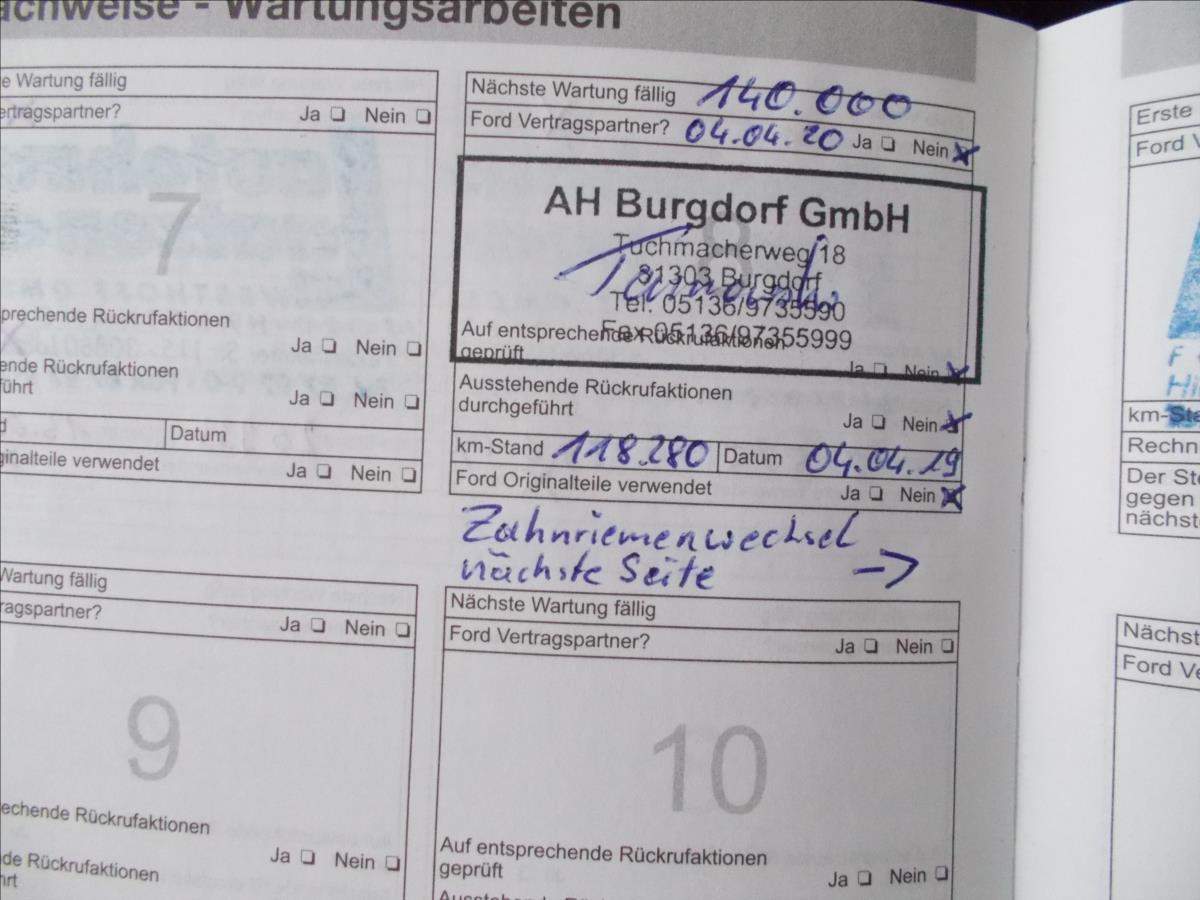 chweise - Wartungsarbeiten
e Wartung fällig
ertragspartner? Ja ❏ Nein ❏
7
prechende Rückrufaktionen
Ja ❏ Nein ❏
ende Rückrufaktionen
ührt Ja ❏ Nein ❏
d Datum
ginalteile verwendet Ja ❏ Nein ❏
Nächste Wartung fällig 140.000
Ford Vertragspartner? 04.04.20 Ja ❏ Nein ☒
8
AH Burgdorf GmbH
Tuchmacherweg 18
31303 Burgdorf
Tel. 05136/9735590
Fax 05136/97355999
Auf entsprechende Rückrufaktionen
geprüft Ja ❏ Nein ☒
Ausstehende Rückrufaktionen
durchgeführt Ja ❏ Nein ☒
km-Stand 118.280 Datum 04.04.19
Ford Originalteile verwendet Ja ❏ Nein ☒
Zahnriemenwechsel
nächste Seite →
Wartung fällig
ragspartner? Ja ❏ Nein ❏
9
echende Rückrufaktionen
Ja ❏ Nein ❏
de Rückrufaktionen
hrt
Nächste Wartung fällig
Ford Vertragspartner? Ja ❏ Nein ❏
10
Auf entsprechende Rückrufaktionen
geprüft Ja ❏ Nein ❏
Erste
Ford V
F
Hi
km-Sta
Rechn
Der Ste
gegen
nächst
Nächst
Ford Ve